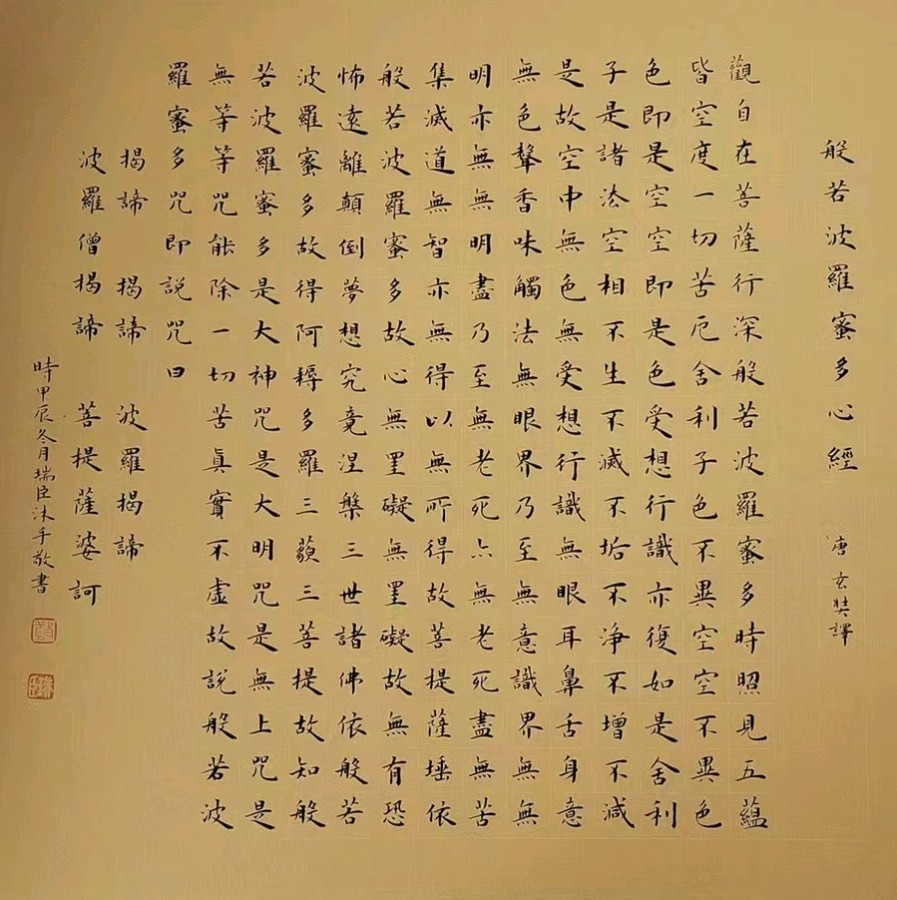 般若波羅蜜多心經 唐玄奘譯
觀自在菩薩行深般若波羅蜜多時照見五蘊
皆空度一切苦厄舍利子色不異空空不異色
色即是空空即是色受想行識亦復如是舍利
子是諸法空相不生不滅不垢不淨不增不減
是故空中無色無受想行識無眼耳鼻舌身意
無色聲香味觸法無眼界乃至無意識界無無
明亦無無明盡乃至無老死亦無老死盡無苦
集滅道無智亦無得以無所得故菩提薩埵依
般若波羅蜜多故心無罣礙無罣礙故無有恐
怖遠離顛倒夢想究竟涅槃三世諸佛依般若
波羅蜜多故得阿耨多羅三藐三菩提故知般
若波羅蜜多是大神咒是大明咒是無上咒是
無等等咒能除一切苦真實不虛故說般若波
羅蜜多咒即說咒曰
揭諦 揭諦 波羅揭諦
波羅僧揭諦 菩提薩婆訶
時甲辰冬月瑞臣沐手敬書